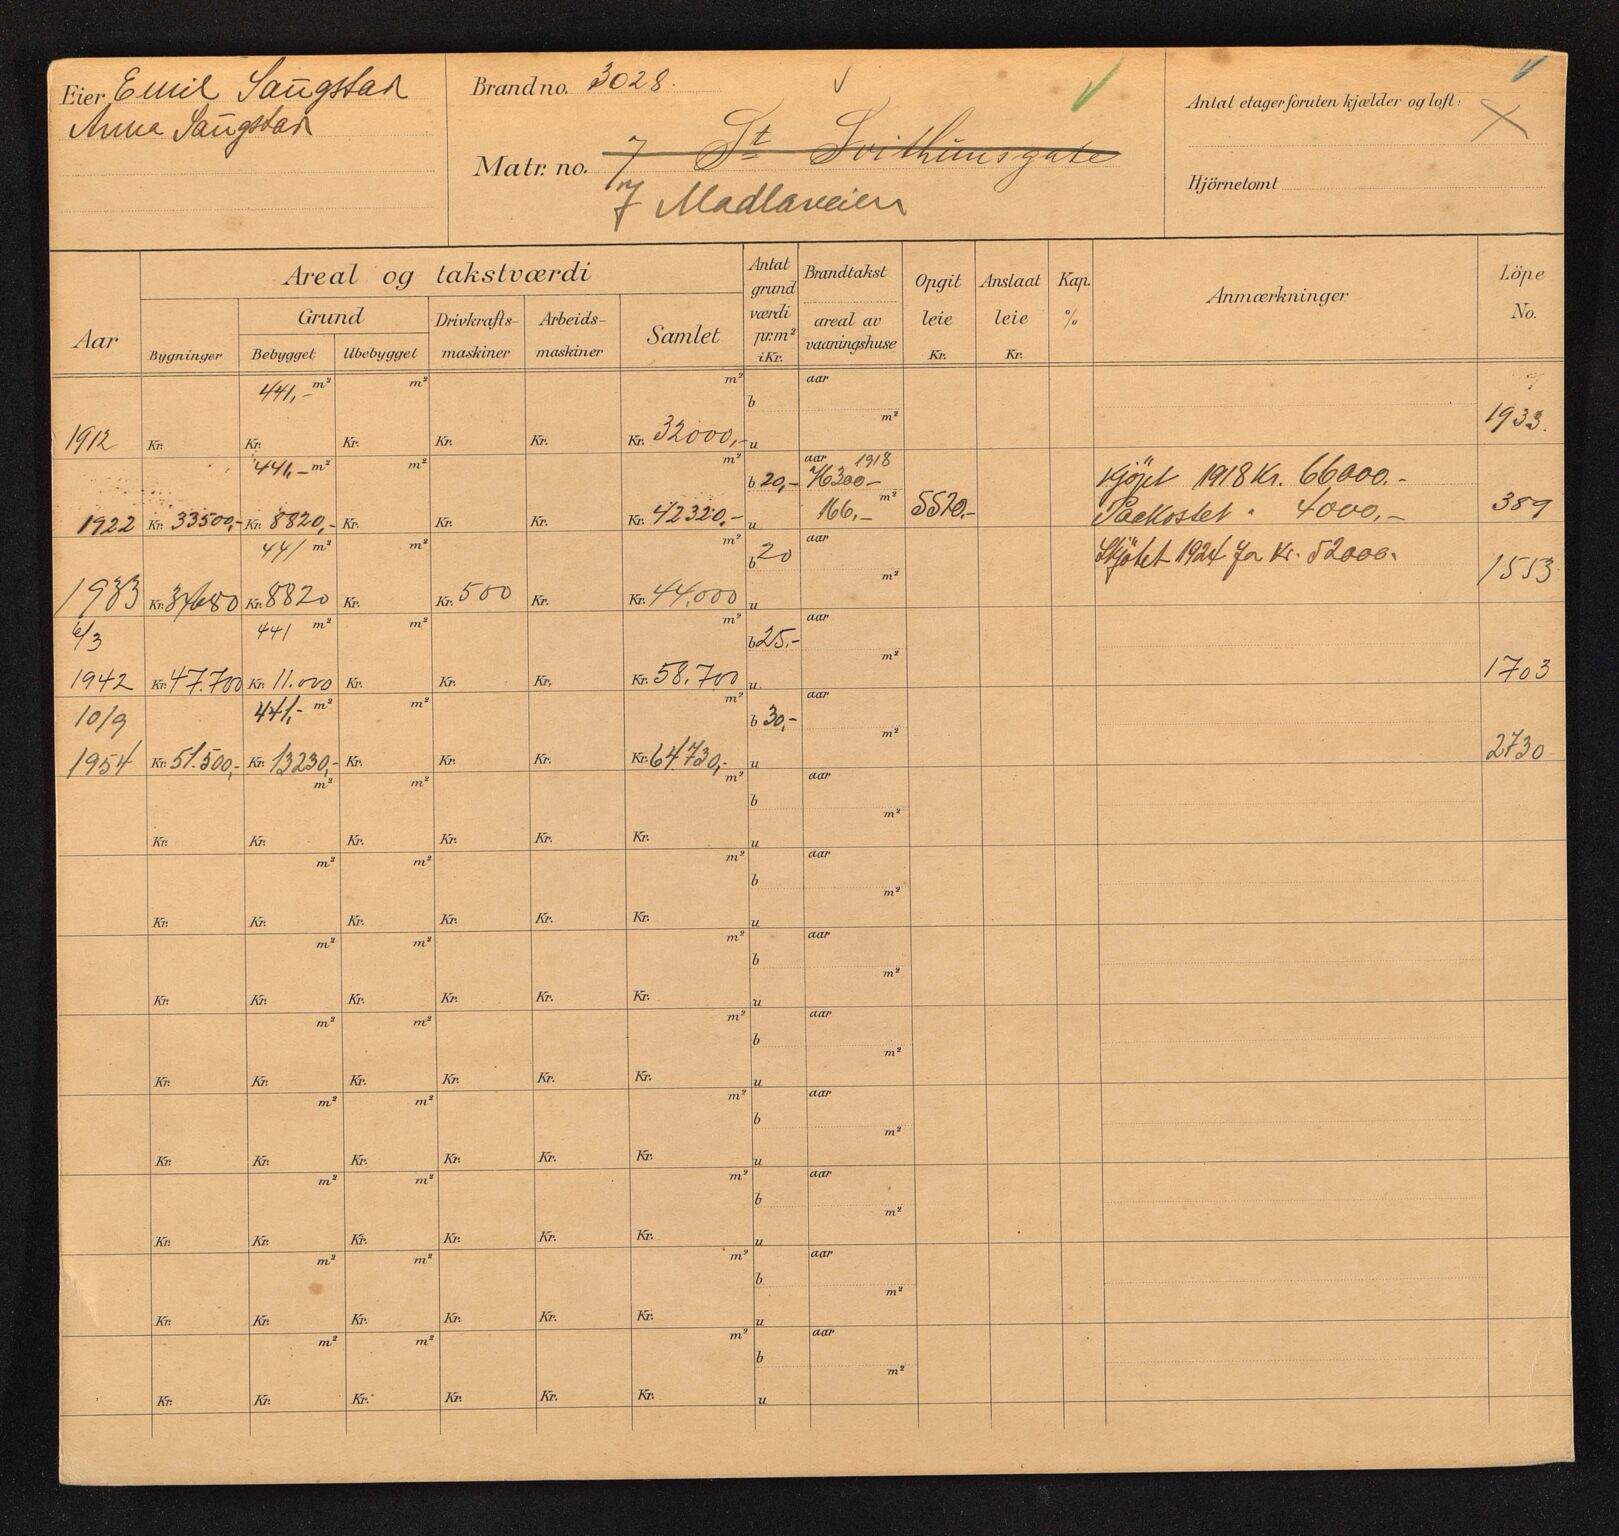 Eier Emil Saugstad
Anna Saugstad
Brand no. 3028.
Matr. no. 7 St Svithunsgate
7 Madlaveien
Antal etager foruten kjælder og loft:
Hjörnetomt
Aar
Areal og takstværdi
Bygninger
Grund
Bebygget
Ubebygget
Drivkrafts-
maskiner
Arbeids-
maskiner
Samlet
Antal
grund
værdi
pr.m²
i Kr.
Brandtakst
areal av
vaaningshuse
Opgit
leie
Kr.
Anslaat
leie
Kr.
Kap.
%
Anmærkninger
Löpe
No.
441,- m² m² m² aar
b
m²
1912 Kr. Kr. Kr. Kr. Kr. Kr. 32000,- u 1933.
441,- m² m² m² b 20,- aar 1918
76300,- Kjöpt 1918 Kr. 66000.-
1922 Kr. 33500,- Kr. 8820,- Kr. Kr. Kr. Kr. 42320,- u 166,- m² 5520,- Paakostet " 4000,- 389
441 m² m² m² b 20 aar Skjötet 1924 for Kr. 52000.
m²
1933 Kr. 34680 Kr. 8820 Kr. Kr. 500 Kr. Kr. 44.000 u 1553
6/3 441 m² m² m² b 25,- aar
m²
1942 Kr. 47.700 Kr. 11.000 Kr. Kr. Kr. Kr. 58.700 u 1703
10/9 441,- m² m² m² b 30,- aar
m²
1954 Kr. 51.500,- Kr. 13230,- Kr. Kr. Kr. Kr. 64.730,- u 2730
m² m² m² aar
b
m²
Kr. Kr. Kr. Kr. Kr. Kr. u
m² m² m² aar
b
m²
Kr. Kr. Kr. Kr. Kr. Kr. u
m² m² m² aar
b
m²
Kr. Kr. Kr. Kr. Kr. Kr. u
m² m² m² aar
b
m²
Kr. Kr. Kr. Kr. Kr. Kr. u
m² m² m² aar
b
m²
Kr. Kr. Kr. Kr. Kr. Kr. u
m² m² m² aar
b
m²
Kr. Kr. Kr. Kr. Kr. Kr. u
m² m² m² aar
b
m²
Kr. Kr. Kr. Kr. Kr. Kr. u
m² m² m² aar
b
m²
Kr. Kr. Kr. Kr. Kr. Kr. u